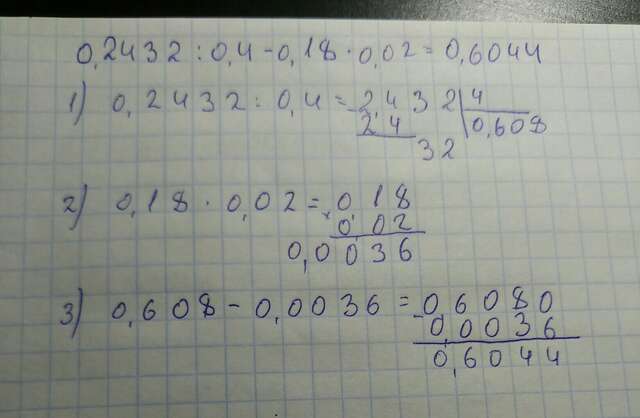 0,2432 : 0,4 - 0,18 · 0,02 = 0,6044
1) 0,2432 : 0,4 = 2,432 | 4
- 2,4 | 0,608
32
2) 0,18 · 0,02 = 0,18
× 0,02
0,0036
3) 0,608 - 0,0036 = 0,6080
- 0,0036
0,6044